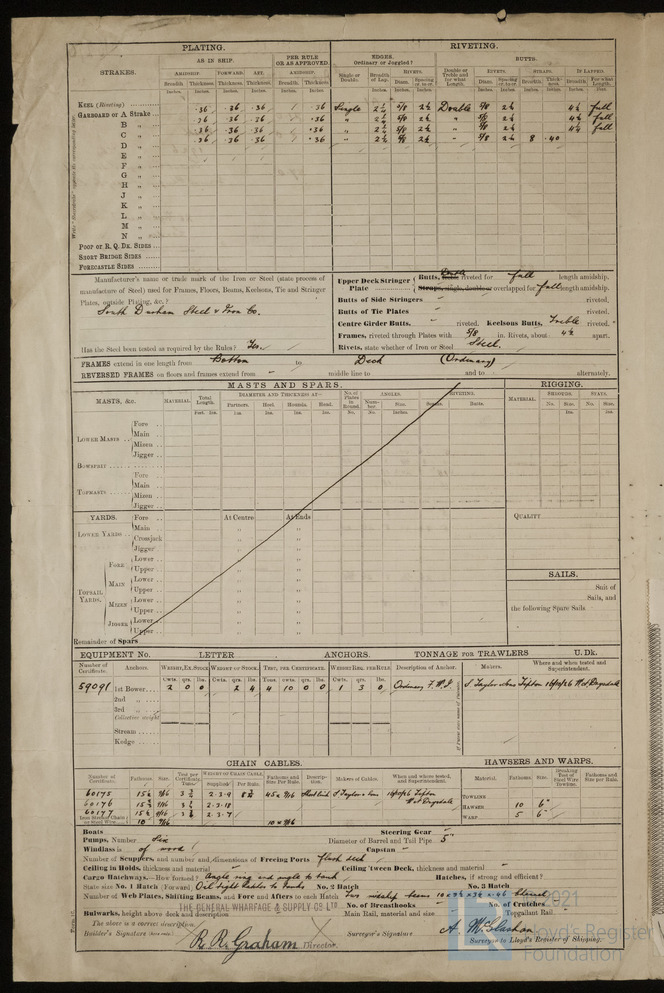 PLATING.
RIVETING.
AS IN SHIP.
PER RULE OR AS APPROVED.
EDGES. Ordinary or Joggled?
BUTTS.
STRAKES.
AMIDSHIP. FORWARD. AFT. AMIDSHIP.
Single or Double. Breadth of Lap. RIVETS. Double or Treble and for what Length. RIVETS. STRAPS. IF LAPPED
Breadth. Thickness. Thickness. Thickness. Breadth. Thickness. Diam. Spacing cr. to cr. Diam. Spacing cr. to cr. Breadth. Thickness. Breadth. For what Length.
KEEL (Rivetting)
GARBOARD OR A Strake .36 .36 .36 .36 Single 2¼ 5/8 2½ Double 5/8 2½ 4½ full
B „ .36 .36 .36 .36 „ 2¼ 5/8 2½ „ 5/8 2½ 4½ full
C „ .36 .36 .36 .36 „ 2¼ 5/8 2½ „ 5/8 2½ 4½ full
D „ .36 .36 .36 .36 „ 2¼ 5/8 2½ „ 5/8 2½ 8 .40
E „
F „
G „
H „
J „
K „
L „
M „
N „
POOP OR R. Q. DK. SIDES
SHORT BRIDGE SIDES
FORECASTLE SIDES
Manufacturer's name or trade mark of the Iron or Steel (state process of
manufacture of Steel) used for Frames, Floors, Beams, Keelsons, Tie and Stringer
Plates, outside Plating, &c.?
South Durham Steel & Iron Co.
Has the Steel been tested as required by the Rules? Yes.
Upper Deck Stringer Plate
Butts, Double riveted for full length amidship.
Straps, single, double or overlapped for full length amidship.
Butts of Side Stringers riveted.
Butts of Tie Plates riveted.
Centre Girder Butts, riveted. Keelsons Butts, Treble riveted.
Frames, riveted through Plates with 5/8 in. Rivets, about 4½ apart.
Rivets, state whether of Iron or Steel Steel.
FRAMES extend in one length from Bottom to Deck (Ordinary)
REVERSED FRAMES on floors and frames extend from middle line to and to alternately.
MASTS AND SPARS.
RIGGING.
MASTS, &c. MATERIAL. Total Length. DIAMETER AND THICKNESS AT— No. of Plates in Round. ANGLES. RIVETING. MATERIAL. SHROUDS. STAYS.
Partners. Heel. Hounds. Head. Number. Size. Seams. Butts. No. Size. No. Size.
LOWER MASTS Fore
Main
Mizen
Jigger
BOWSPRIT
Fore
TOPMASTS Main
Mizen
Jigger
YARDS. Fore At Centre At Ends
LOWER YARDS Main
Crossjack
Jigger
FORE Lower
Upper
MAIN Lower
Upper
TOPSAIL YARDS, MIZEN Lower
Upper
JIGGER Lower
Upper
Remainder of Spars
QUALITY
SAILS.
Suit of
Sails, and
the following Spare Sails
EQUIPMENT No. LETTER ANCHORS. TONNAGE FOR TRAWLERS U. Dk.
Number of Certificate. Anchors. WEIGHT, EX. STOCK WEIGHT OF STOCK. TEST, PER CERTIFICATE. WEIGHT REQ. PER RULE Description of Anchor. Makers. Where and when tested and Superintendent.
Cwts. qrs. lbs. Cwts. qrs. lbs. Tons. cwts. qrs. lbs. Cwts. qrs. lbs.
59091 1st Bower 2 0 0 2 4 4 10 0 0 1 3 0 Ordinary S. Taylor & Sons Tipton
2nd „
3rd „
Collective weight
Stream
Kedge
CHAIN CABLES.
HAWSERS AND WARPS.
Number of Certificate. Fathoms. Size. Test per Certificate. Tons. WEIGHT OF CHAIN CABLE. Fathoms and Size Per Rule. Description. Makers of Cables. When and where tested, and Superintendent. Material. Fathoms. Size. Breaking Test of Steel Wire Towline. Fathoms and Size Per Rule.
Supplied Per Rule.
60175 15½ 9/16 2.3.9 45 x 9/16 Stud Link S. Taylor & Sons Tipton
60176 15½ 9/16 2.3.18
60177 15½ 9/16 2.3.7
Iron Stream Chain or Steel Wire 10 9/16 10 x 9/16
TOWLINE
HAWSER 10 6"
WARP 5 6"
Boats Steering Gear
Pumps, Number Six Diameter of Barrel and Tail Pipe 5"
Windlass is of wood Capstan
Number of Scuppers, and number and dimensions of Freeing Ports flush deck
Ceiling in Holds, thickness and material Ceiling 'Tween Deck, thickness and material
Cargo Hatchways.—How formed? Angle ring and angle to tank Hatches, if strong and efficient?
State size No. 1 Hatch (Forward) Oil tight hatches to tanks No. 2 Hatch No. 3 Hatch
Number of Web Plates, Shifting Beams, and Fore and Afters to each Hatch
THE GENERAL WHARFAGE & SUPPLY CO. LTD
No. of Breasthooks No. of Crutches
Bulwarks, height above deck and description Main Rail, material and size Topgallant Rail
The above is a correct description
Builder's Signature R. R. Graham Director.
Surveyor's Signature A. McGlashan
Surveyor to Lloyd's Register of Shipping.
2021
Lloyd's Register
Foundation